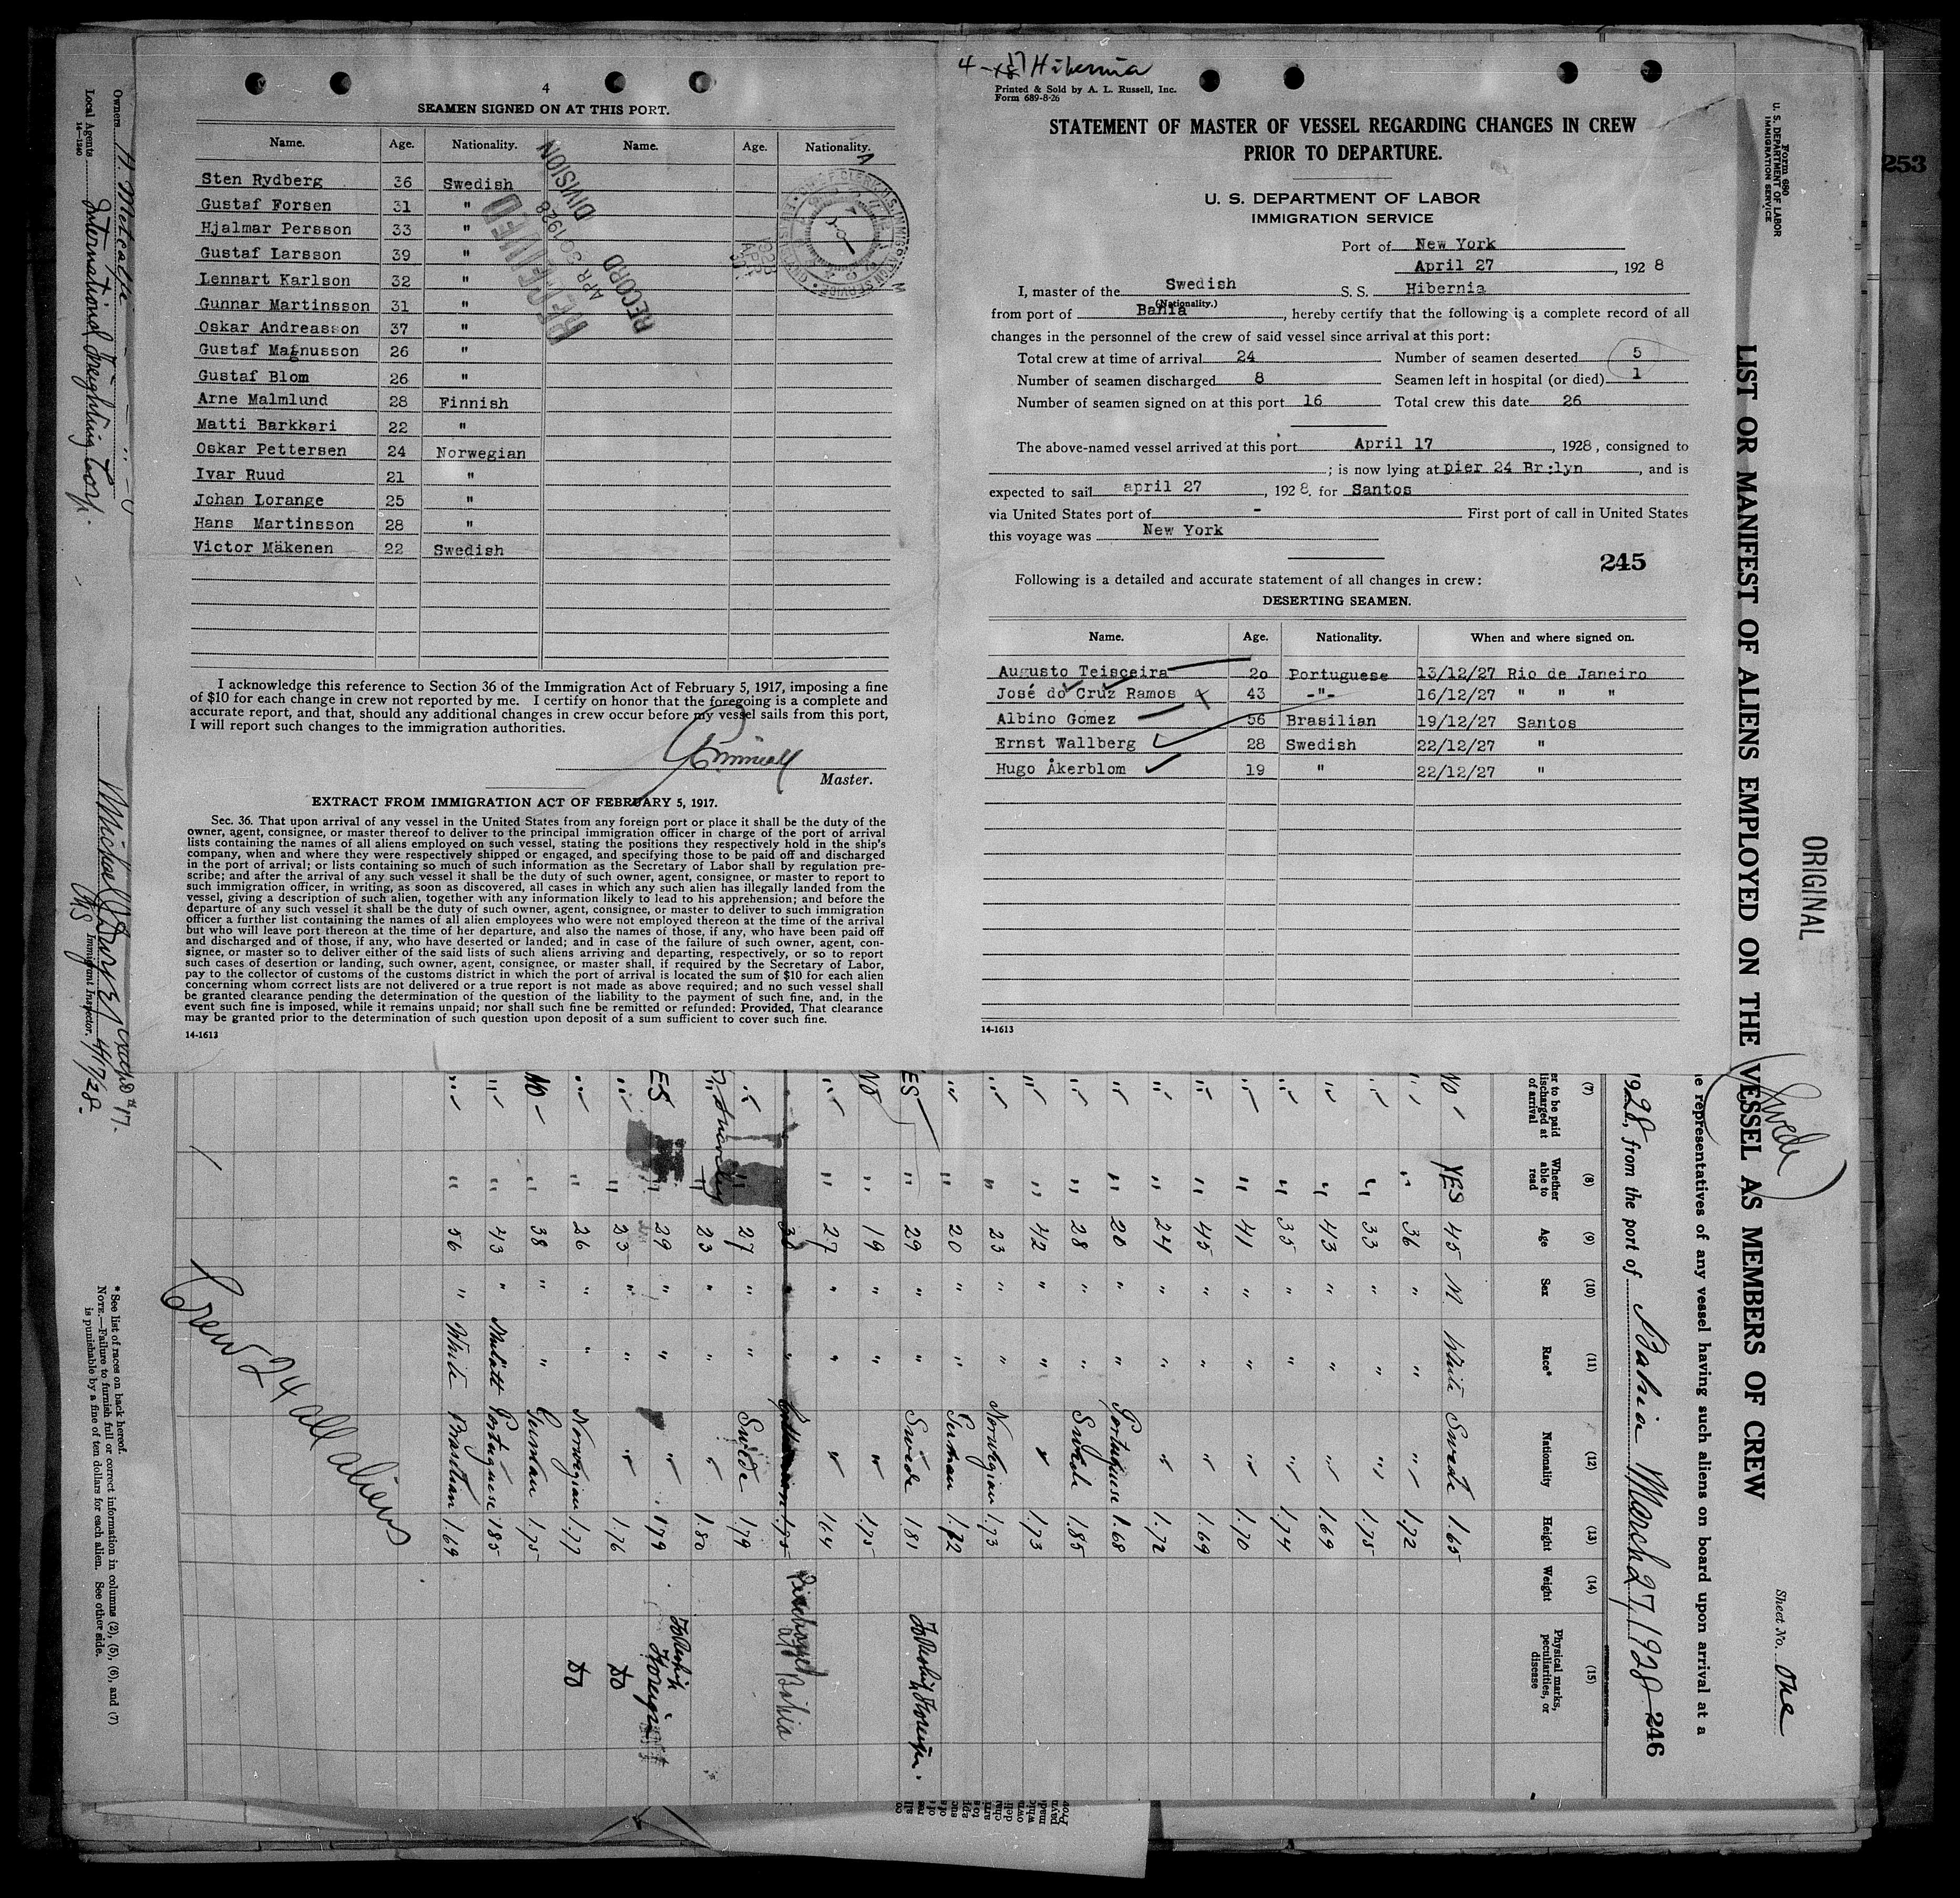 4
SEAMEN SIGNED ON AT THIS PORT.
Name. Age. Nationality. Name. Age. Nationality.
Sten Rydberg 36 Swedish
Gustaf Forsen 31 "
Hjalmar Persson 33 "
Gustaf Larsson 39 "
Lennart Karlson 32 "
Gunnar Martinsson 31 "
Oskar Andreasson 37 "
Gustaf Magnusson 26 "
Gustaf Blom 26 "
Arne Malmlund 28 Finnish
Matti Barkkari 22 "
Oskar Pettersen 24 Norwegian
Ivar Ruud 21 "
Johan Lorange 25 "
Hans Martinsson 28 "
Victor Mäkenen 22 Swedish
RECEIVED
APR 30 1928
RECORD DIVISION
I acknowledge this reference to Section 36 of the Immigration Act of February 5, 1917, imposing a fine
of $10 for each change in crew not reported by me. I certify on honor that the foregoing is a complete and
accurate report, and that, should any additional changes in crew occur before my vessel sails from this port,
I will report such changes to the immigration authorities.
Master.
EXTRACT FROM IMMIGRATION ACT OF FEBRUARY 5, 1917.
Sec. 36. That upon arrival of any vessel in the United States from any foreign port or place it shall be the duty of the
owner, agent, consignee, or master thereof to deliver to the principal immigration officer in charge of the port of arrival
lists containing the names of all aliens employed on such vessel, stating the positions they respectively hold in the ship's
company, when and where they were respectively shipped or engaged, and specifying those to be paid off and discharged
in the port of arrival; or lists containing so much of such information as the Secretary of Labor shall by regulation pre-
scribe; and after the arrival of any such vessel it shall be the duty of such owner, agent, consignee, or master to report to
such immigration officer, in writing, as soon as discovered, all cases in which any such alien has illegally landed from the
vessel, giving a description of such alien, together with any information likely to lead to his apprehension; and before the
departure of any such vessel it shall be the duty of such owner, agent, consignee, or master to deliver to such immigration
officer a further list containing the names of all alien employees who were not employed thereon at the time of the arrival
but who will leave port thereon at the time of her departure, and also the names of those, if any, who have been paid off
and discharged and of those, if any, who have deserted or landed; and in case of the failure of such owner, agent, con-
signee, or master so to deliver either of the said lists of such aliens arriving and departing, respectively, or so to report
such cases of desertion or landing, such owner, agent, consignee, or master shall, if required by the Secretary of Labor,
pay to the collector of customs of the customs district in which the port of arrival is located the sum of $10 for each alien
concerning whom correct lists are not delivered or a true report is not made as above required; and no such vessel shall
be granted clearance pending the determination of the question of the liability to the payment of such fine, and, in the
event such fine is imposed, while it remains unpaid; nor shall such fine be remitted or refunded: Provided, That clearance
may be granted prior to the determination of such question upon deposit of a sum sufficient to cover such fine.
14-1613
4- 17 Hibernia
Printed & Sold by A. L. Russell, Inc.
Form 689-8-26
STATEMENT OF MASTER OF VESSEL REGARDING CHANGES IN CREW
PRIOR TO DEPARTURE.
U. S. DEPARTMENT OF LABOR
IMMIGRATION SERVICE
Port of New York
April 27, 1928
I, master of the Swedish S. S. Hibernia
(Nationality.)
from port of Bahia, hereby certify that the following is a complete record of all
changes in the personnel of the crew of said vessel since arrival at this port:
Total crew at time of arrival 24 Number of seamen deserted 5
Number of seamen discharged 8 Seamen left in hospital (or died) 1
Number of seamen signed on at this port 16 Total crew this date 26
The above-named vessel arrived at this port April 17, 1928, consigned to
; is now lying at pier 24 Br:lyn, and is
expected to sail april 27, 1928. for Santos
via United States port of - First port of call in United States
this voyage was New York
245
Following is a detailed and accurate statement of all changes in crew:
DESERTING SEAMEN.
Name. Age. Nationality. When and where signed on.
Augusto Teisceira 20 Portuguese 13/12/27 Rio de Janeiro
José do Cruz Ramos 43 -"- 16/12/27 " " "
Albino Gomez 56 Brasilian 19/12/27 Santos
Ernst Wallberg 28 Swedish 22/12/27 "
Hugo Åkerblom 19 " 22/12/27 "
14-1613
253
Form 680
U. S. DEPARTMENT OF LABOR
IMMIGRATION SERVICE
ORIGINAL
Sheet No. One
LIST OR MANIFEST OF ALIENS EMPLOYED ON THE VESSEL AS MEMBERS OF CREW
(Swede)
representatives of any vessel having such aliens on board upon arrival at a
1928, from the port of Bahia March 27, 1928
246
(7) (8) (9) (10) (11) (12) (13) (14) (15)
er to be paid discharged at of arrival
Whether able to read
Age
Sex
Race*
Nationality
Height
Weight
Physical marks, peculiarities, or disease
NO YES 45 M White Swede 1.65
" " 36 " " " 1.72
" " 33 " " " 1.75
" " 43 " " " 1.69
" " 35 " " " 1.74
" " 41 " " " 1.70
" " 45 " " " 1.69
" " 24 " " " 1.72
" " 20 " " Portuguese 1.68
" " 28 " " Swede 1.85
" " 42 " " " 1.73
" " 23 " " Norwegian 1.73
" " 20 " " German 1.72
YES " 29 " " Swede 1.81 To Reship Foreign.
NO " 19 " " " 1.75
" " 27 " " " 1.64
38 " " 1.75 Discharged at Bahia
" " 27 " " Swede 1.79
" 23 " " " 1.80
YES " 29 " " " 1.79 To Reship Foreign
" " 23 " " " 1.76 do
" " 26 " " Norwegian 1.77 do
NO " 38 " " German 1.75
" " 43 " Mulatt Portuguese 1.85
" " 56 " White Brasilian 1.69
Crew 24 all aliens
* See list of races on back hereof.
NOTE.—Failure to furnish full or correct information in columns (2), (5), (6), and (7)
is punishable by a fine of ten dollars for each alien. See other side.
Owners H. Metcalfe
Local Agents International Freighting Corp.
14-1240
except # 17.
4/17/28
Immigrant Inspector.